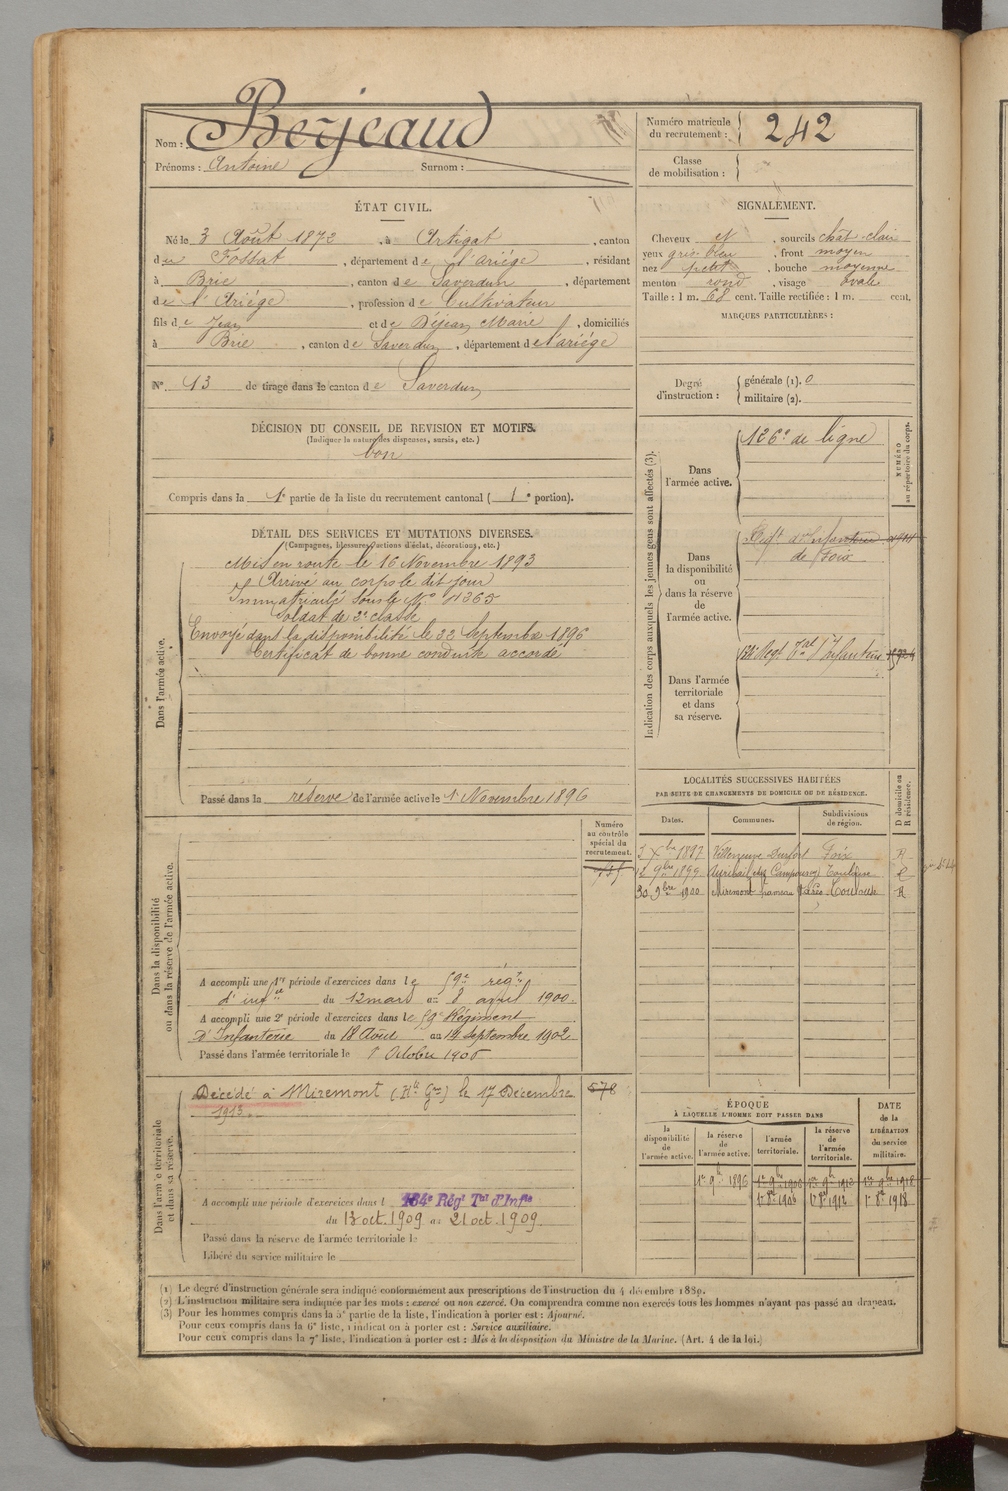 Nom : Berjeaud
Prénoms : Antoine Surnom :
Numéro matricule du recrutement : 242
Classe de mobilisation :
ÉTAT CIVIL.
Né le 3 Août 1872, à Artigat, canton
du Fossat, département de l'Ariège, résidant
à Brie, canton de Saverdun, département
de l'Ariège, profession de Cultivateur
fils de Jean et de Déjean Marie, domiciliés
à Brie, canton de Saverdun, département de l'Ariège
N° 13 de tirage dans le canton de Saverdun
DÉCISION DU CONSEIL DE REVISION ET MOTIFS.
(Indiquer la nature des dispenses, sursis, etc.)
bon
Compris dans la 1e partie de la liste du recrutement cantonal (1e portion).
DÉTAIL DES SERVICES ET MUTATIONS DIVERSES.
(Campagnes, blessures, actions d'éclat, décorations, etc.)
Dans l'armée active.
Mis en route le 16 Novembre 1893
Arrivé au corps le dit jour
Immatriculé sous le N° 4365
Soldat de 2e classe
Envoyé dans la disponibilité le 22 Septembre 1896
Certificat de bonne conduite accordé
Passé dans la réserve de l'armée active le 1 Novembre 1896
SIGNALEMENT.
Cheveux et, sourcils chât-clair
yeux gris-bleu, front moyen
nez petit, bouche moyenne
menton rond, visage ovale
Taille : 1 m. 68 cent. Taille rectifiée : 1 m. cent.
MARQUES PARTICULIÈRES :
Degré d'instruction :
générale (1). 0
militaire (2).
Indication des corps auxquels les jeunes gens sont affectés (3).
NUMÉRO au répertoire du corps.
Dans l'armée active.
126e de ligne
Dans la disponibilité ou dans la réserve de l'armée active.
Regt d'Infanterie
de Foix
Dans l'armée territoriale et dans sa réserve.
Regt Tal d'Infanterie
LOCALITÉS SUCCESSIVES HABITÉES
PAR SUITE DE CHANGEMENTS DE DOMICILE OU DE RÉSIDENCE.
D domicile ou R résidence.
Dates. Communes. Subdivisions de région.
Xbre 1897 Villeneuve Durfort Foix R
9bre 1899 Toulouse R
30 9bre 1900 Miremont Toulouse R
Numéro au contrôle spécial du recrutement.
Dans la disponibilité ou dans la réserve de l'armée active.
A accompli une 1re période d'exercices dans le 59e régt
d'infie du 12 mars au 8 avril 1900.
A accompli une 2e période d'exercices dans le 59e Régiment
d'Infanterie du 18 Août au 14 Septembre 1902
Passé dans l'armée territoriale le 1 Octobre 1906
Dans l'armée territoriale et dans sa réserve.
Décédé à Miremont (Hte Gne) le 17 Décembre
1913
578
A accompli une période d'exercices dans l 134e Régt Tal d'Infie
du 13 oct. 1909 au 21 oct. 1909.
Passé dans la réserve de l'armée territoriale le
Libéré du service militaire le
ÉPOQUE
À LAQUELLE L'HOMME DOIT PASSER DANS
DATE de la LIBÉRATION du service militaire.
la disponibilité de l'armée active. la réserve de l'armée active. l'armée territoriale. la réserve de l'armée territoriale.
1er 9bre 1896 1er 9bre 1906 1er 9bre 1912 1er 9bre 1918
1er 8bre 1906 1er 8bre 1912 1er 8bre 1918
(1) Le degré d'instruction générale sera indiqué conformément aux prescriptions de l'instruction du 4 décembre 1889.
(2) L'instruction militaire sera indiquée par les mots : exercé ou non exercé. On comprendra comme non exercés tous les hommes n'ayant pas passé au drapeau.
(3) Pour les hommes compris dans la 5e partie de la liste, l'indication à porter est : Ajourné.
Pour ceux compris dans la 6e liste, l'indication à porter est : Service auxiliaire.
Pour ceux compris dans la 7e liste, l'indication à porter est : Mis à la disposition du Ministre de la Marine. (Art. 4 de la loi.)